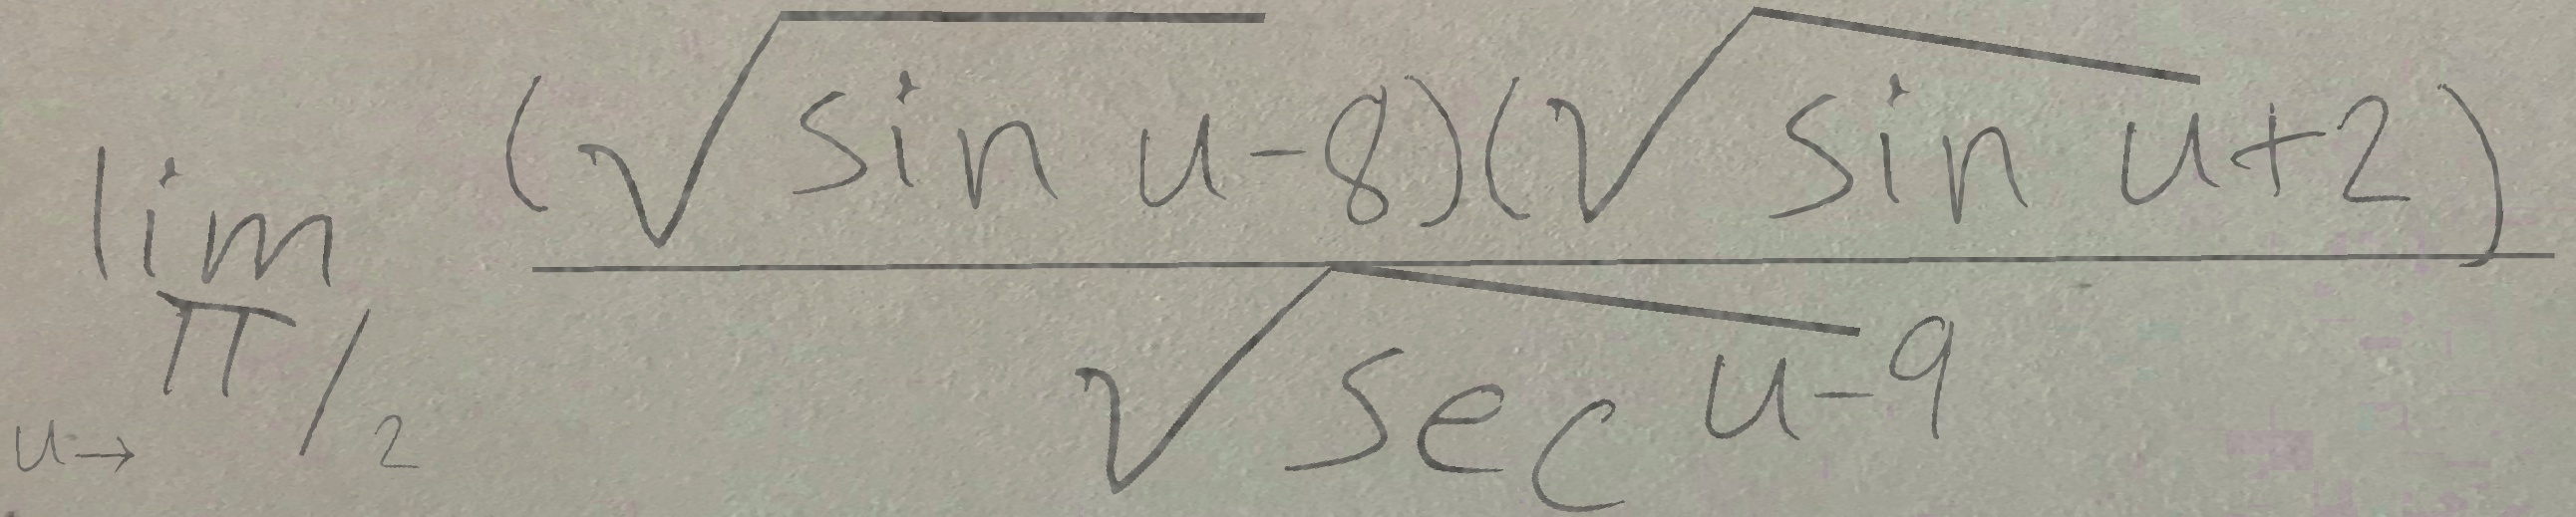 \lim_{u \to \pi/2} \frac{(\sqrt{\sin u} - 8)(\sqrt{\sin u} + 2)}{\sqrt{\sec u} - 9}